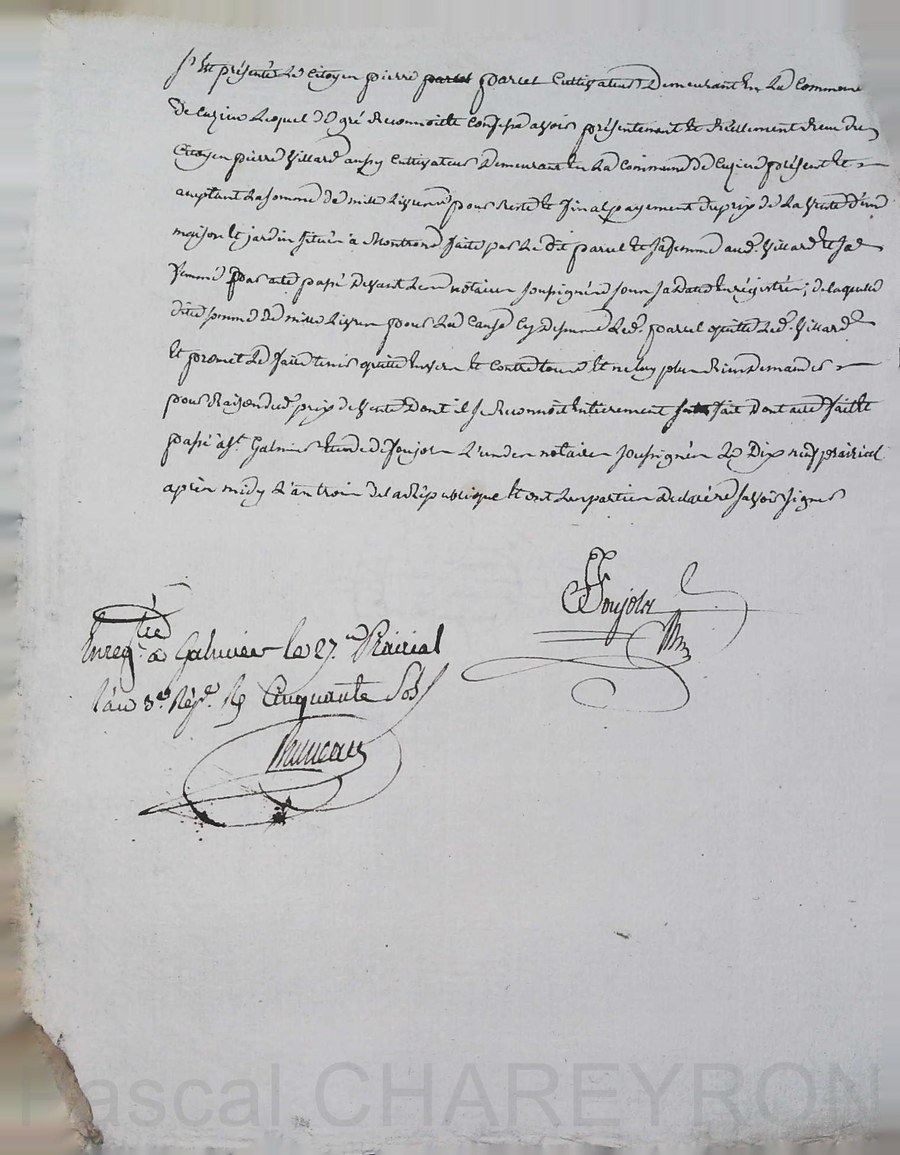 S'est présenté le citoyen pierre parcel parcel Cultivateur demeurant en la commune
de Cuzieu lequel de gré Reconnoit et confesse avoir présentement et réellement Reçu du
Citoyen pierre Villard aussy Cultivateur demeurant en la commune de Cuzieu présent et
acceptant la somme de mille livres pour reste et final payement du prix de la Vente d'un
maison et jardin située à Montrond faite par le dit parcel et sa femme aud. Villard et sa
femme par acte passé devant le notaire soussigné sous sa date Enrégistrée; de laquelle
dite somme de mille livres pour la cause cy dessus led. parcel quitte led. Villard
et promet le faire tenir quitte envers et contre tous et ne luy plus Rien demander
pour Raison dud. prix de vente dont il se Reconnoit entierement fait dont acte fait et
passé à St. Galmier Etude de Soujol l'un des notaires soussignés le Dix neuf prairial
après midy l'an trois de la République et ont les parties déclaré savoir signer
Soujol
Nre
Enregtré à Galmier le 27. Prairial
l'an 3e. Rép. R Cinquante Sols